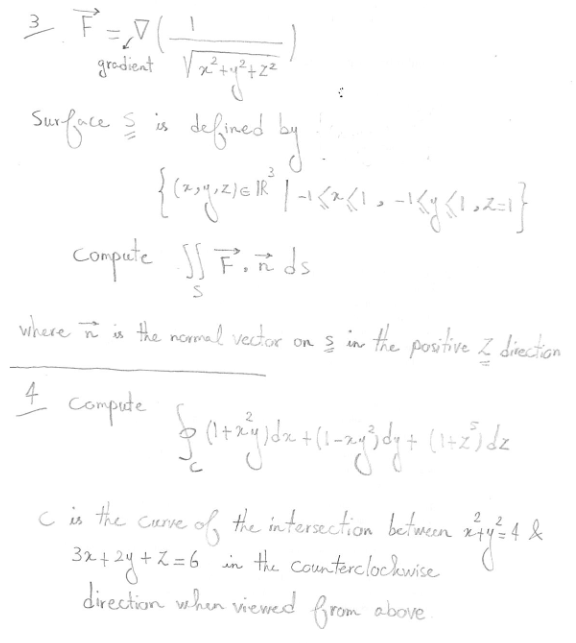 3 F⃗ = ∇( 1 / √(x²+y²+z²) )
gradient
Surface S is defined by
{(x,y,z)∈ℝ³ | -1⩽x⩽1, -1⩽y⩽1, z=1}
compute ∬_S F⃗ . n⃗ ds
where n⃗ is the normal vector on S in the positive Z direction
4 compute
∮_C (1+x²y)dx+(1-xy²)dy+(1+z⁵)dz
C is the curve of the intersection between x²+y²=4 &
3x+2y+z=6 in the counterclockwise
direction when viewed from above